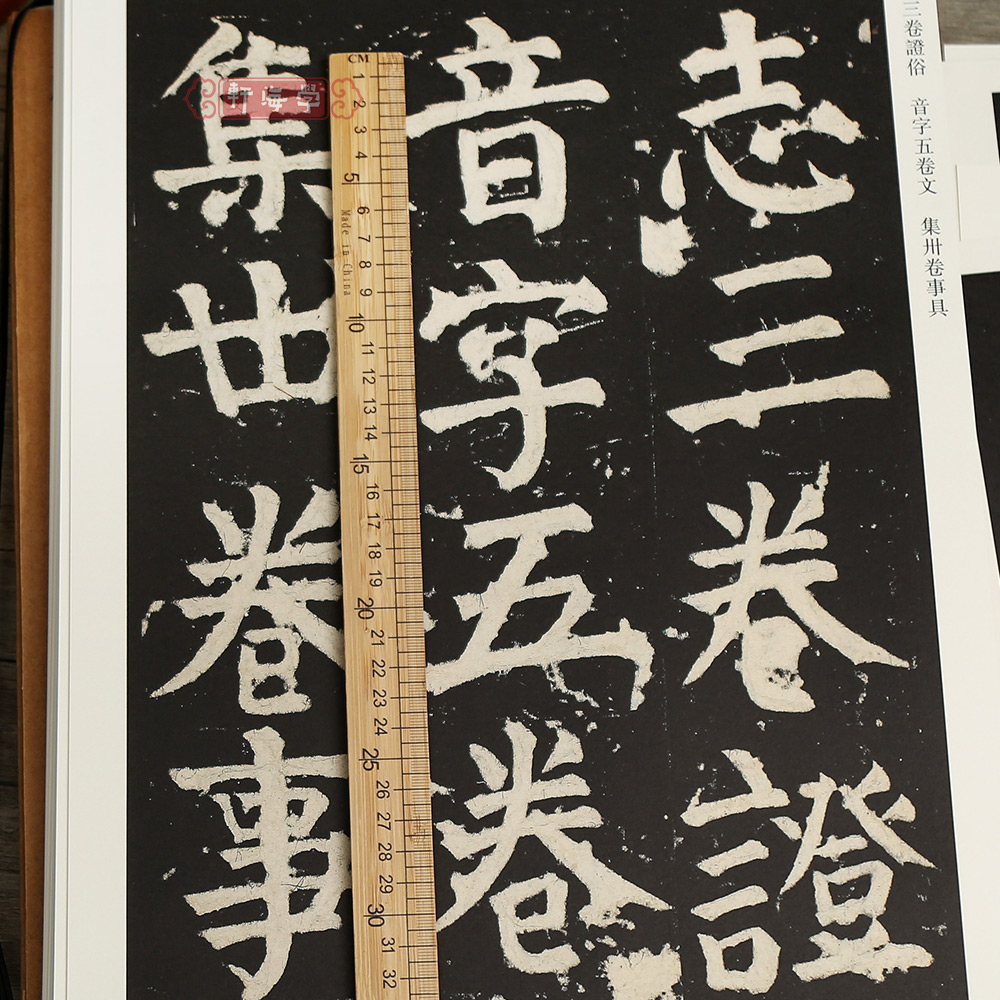 三卷證俗　音字五卷文　集卅卷事具
志三卷證
音字五卷
集廿卷事
學海軒
CM
1
2
3
4
5
6
7
8
9
10
11
12
13
14
15
16
17
18
19
20
21
22
23
24
25
26
27
28
29
30
31
32
Made in China